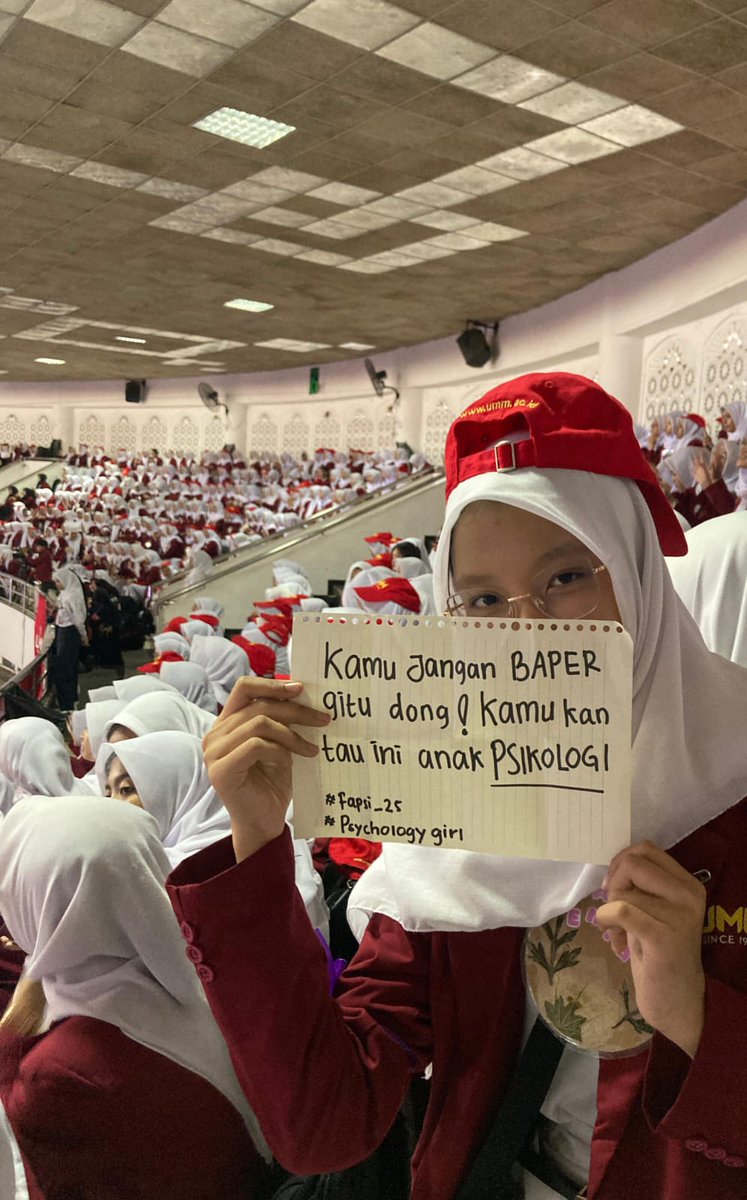 www.umm.ac.id
Kamu Jangan BAPER
gitu dong! Kamu kan
tau ini anak PSIKOLOGI
#Fapsi_25
#Psychology girl
UMM
SINCE 19